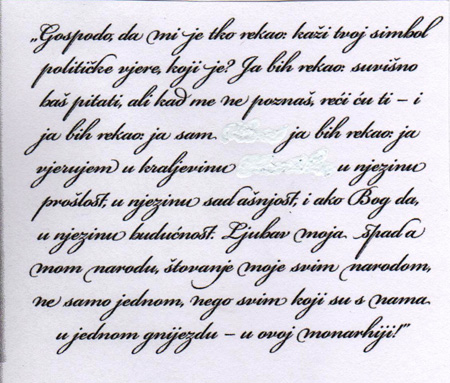 „Gospodo, da mi je tko rekao: kaži tvoj simbol
političke vjere, koji je? Ja bih rekao: suvišno
baš pitati, ali kad me ne poznaš, reći ću ti – i
ja bih rekao: ja sam ja bih rekao: ja
vjerujem u kraljevinu u njezinu
prošlost, u njezinu sad ašnjost, i ako Bog da,
u njezinu budućnost. Ljubav moja spada
mom narodu, štovanje moje svim narodom,
ne samo jednom, nego svim koji su s nama
u jednom gnijezdu – u ovoj monarhiji!"